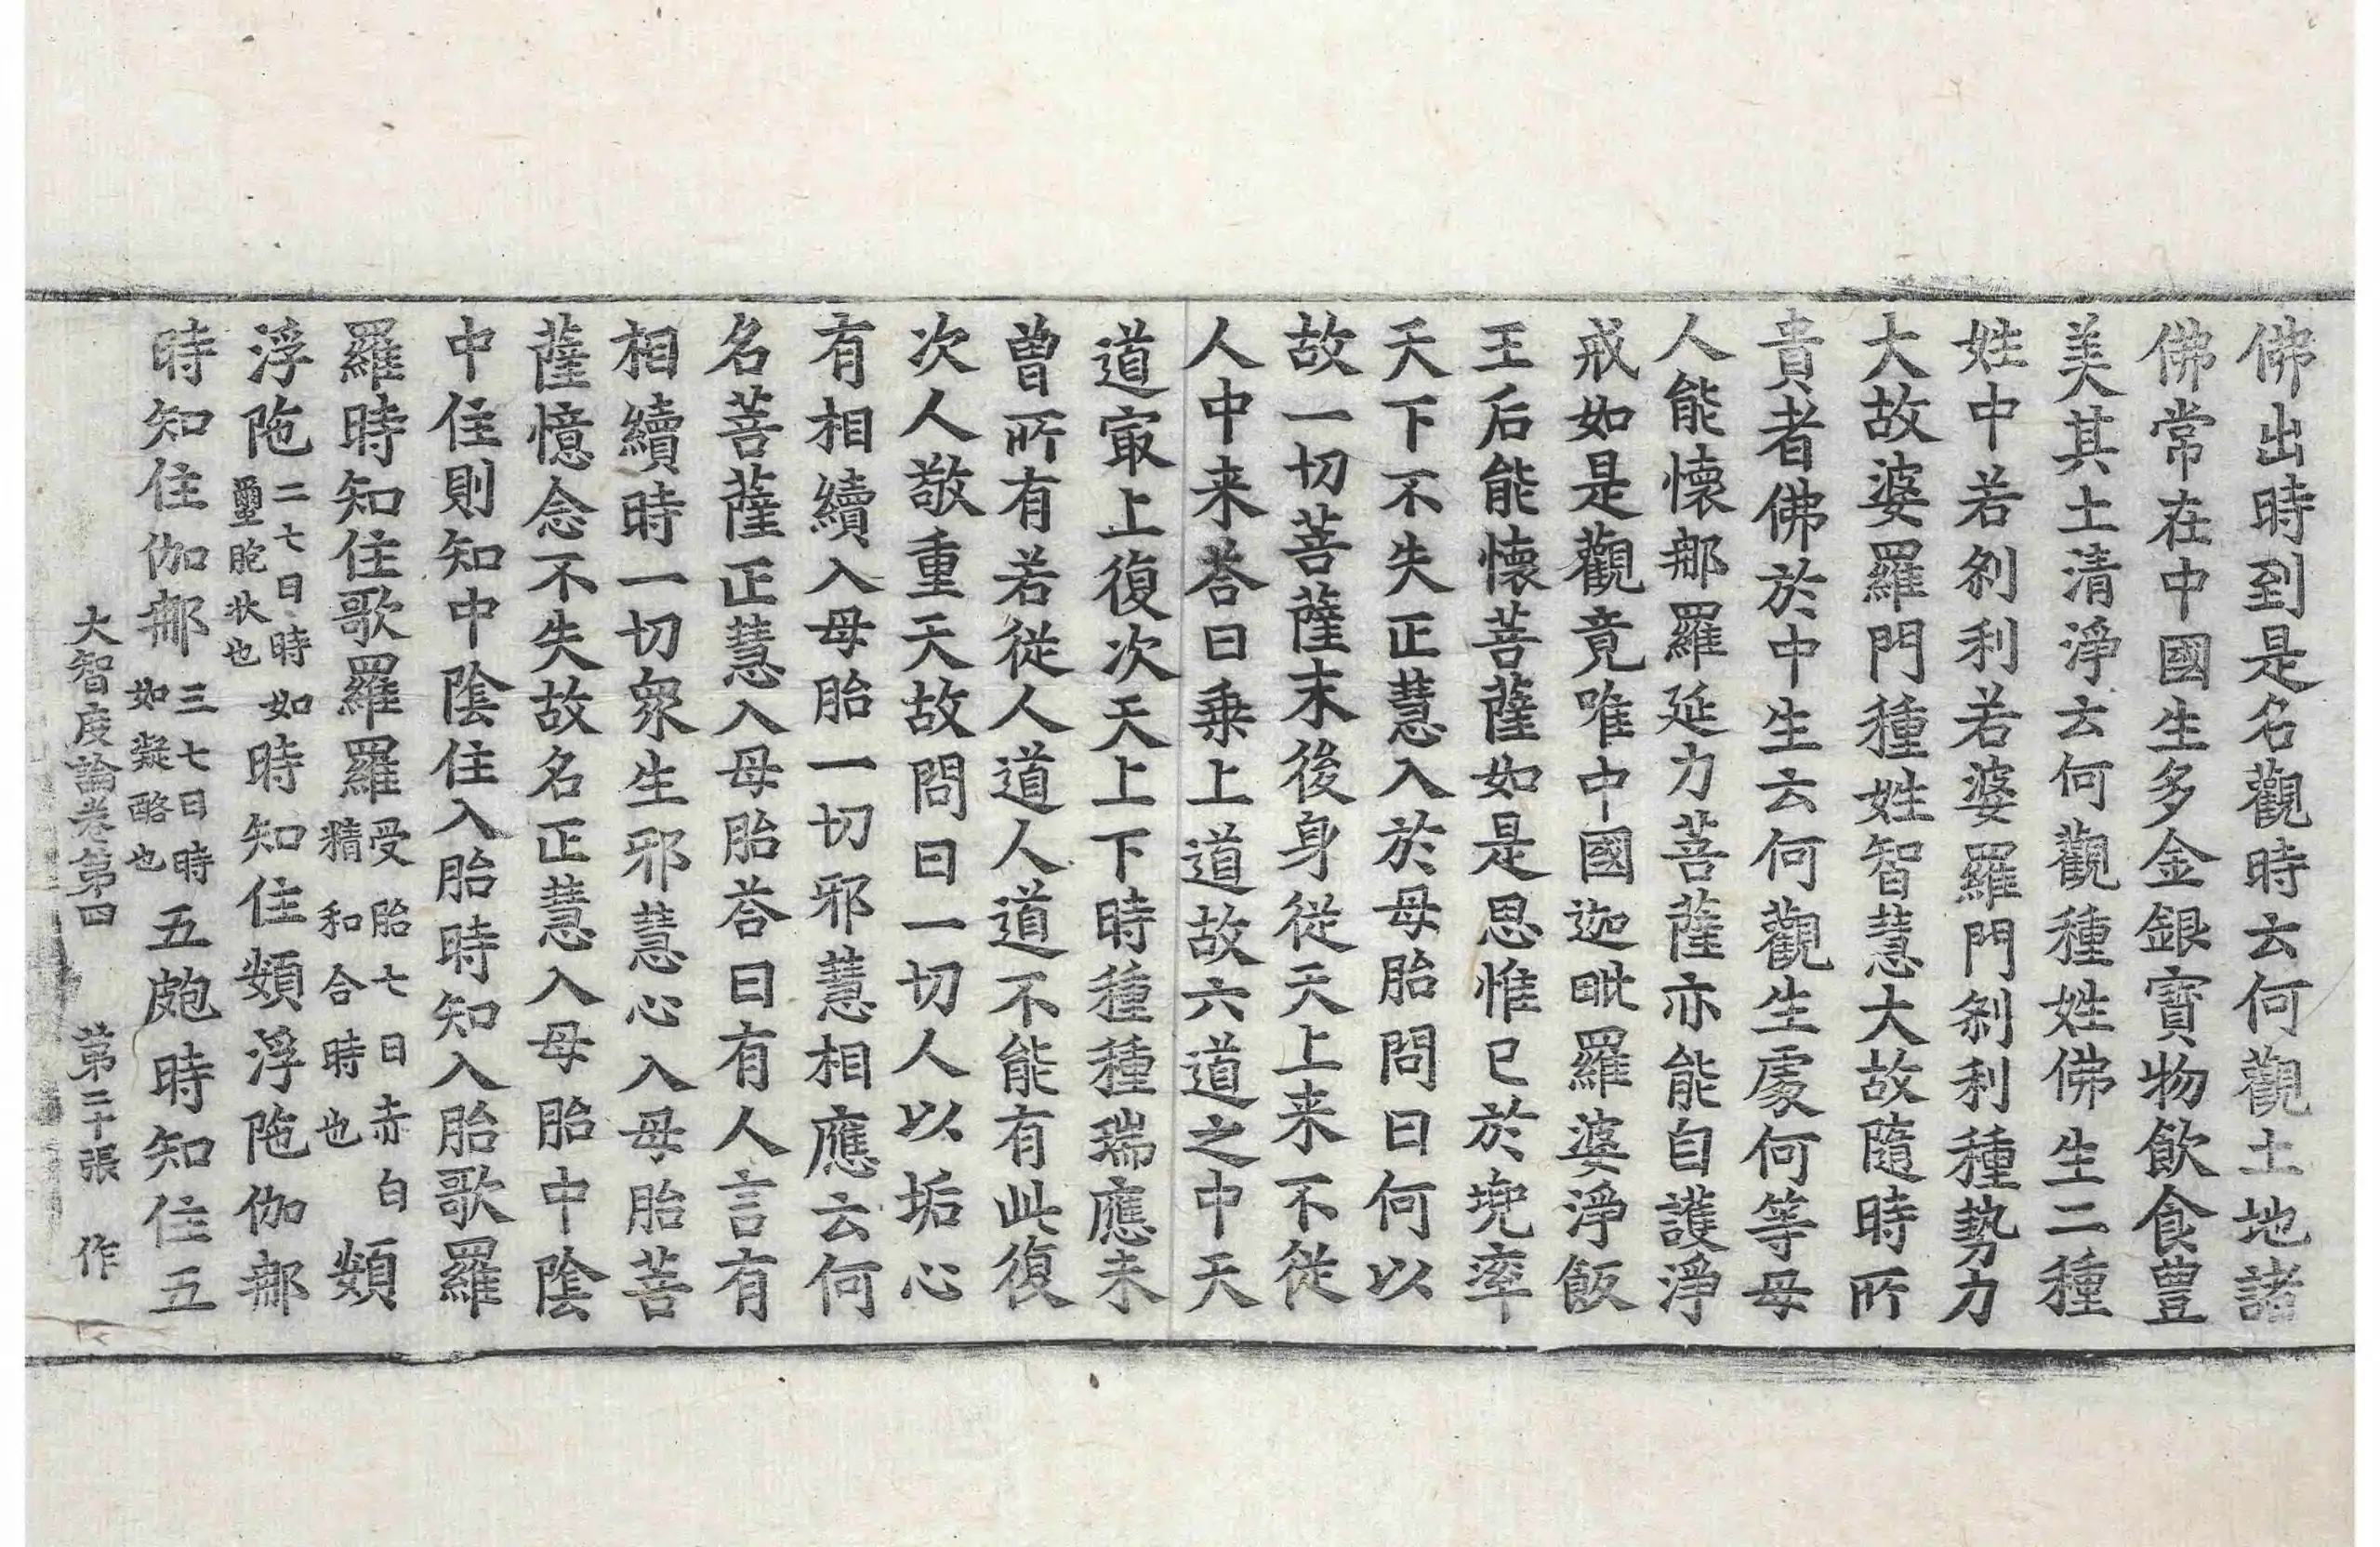 佛出時到是名觀時云何觀土地諸
佛常在中國生多金銀寳物飲食豊
美其土清淨云何觀種姓佛生二種
姓中若刹利若婆羅門刹利種勢力
大故婆羅門種姓智慧大故隨時所
貴者佛於中生云何觀生處何等母
人能懷那羅延力菩薩亦能自護淨
戒如是觀竟唯中國迦毗羅婆淨飯
王后能懷菩薩如是思惟已於兜率
天下不失正慧入於母胎問曰何以
故一切菩薩末後身從天上来不從
人中来荅曰乗上道故六道之中天
道㝡上復次天上下時種種瑞應未
曾所有若從人道人道不能有此復
次人敬重天故問曰一切人以垢心
有相續入母胎一切邪慧相應云何
名菩薩正慧入母胎荅曰有人言有
相續時一切衆生邪慧心入母胎菩
薩憶念不失故名正慧入母胎中陰
中住則知中陰住入胎時知入胎歌羅
羅時知住歌羅羅受胎七日赤白精和合時也頞
浮陁二七日時如瘡皰狀也時知住頞浮陁伽那
時知住伽那三七日時如凝酪也五皰時知住五
大智度論卷第四　第二十張　作